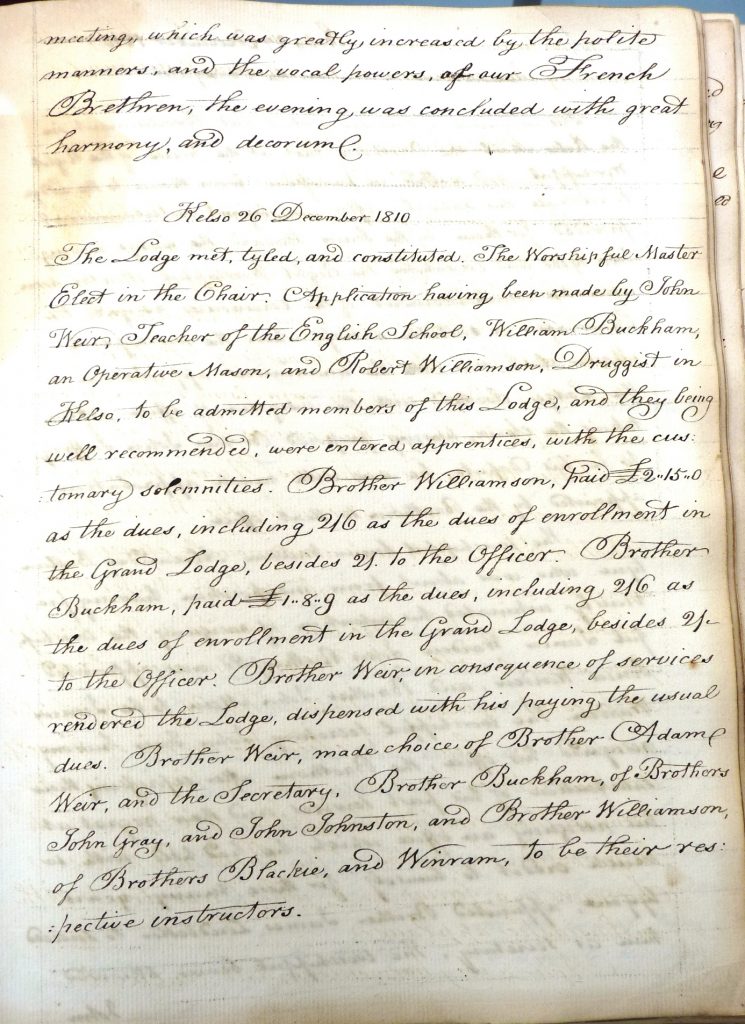 meeting, which was greatly increased by the polite
manners, and the vocal powers, of our French
Brethren, the evening was concluded with great
harmony, and decorum.
Kelso 26 December 1810
The Lodge met, tyled, and constituted. The Worshipful Master
Elect in the Chair. Application having been made by John
Weir, Teacher of the English School, William Buckham,
an Operative Mason, and Robert Williamson, Druggist in
Kelso, to be admitted members of this Lodge, and they being
well recommended, were entered apprentices, with the cus:
:tomary solemnities. Brother Williamson, paid £2..15..0
as the dues, including 2/6 as the dues of enrollment in
the Grand Lodge, besides 2/. to the Officer. Brother
Buckham, paid £1..8..9 as the dues, including 2/6 as
the dues of enrollment in the Grand Lodge, besides 2/-
to the Officer. Brother Weir, in consequence of services
rendered the Lodge, dispensed with his paying the usual
dues. Brother Weir, made choice of Brother Adam
Weir, and the Secretary. Brother Buckham, of Brothers
John Gray, and John Johnston, and Brother Williamson,
of Brothers Blackie, and Winram, to be their res:
:pective instructors.